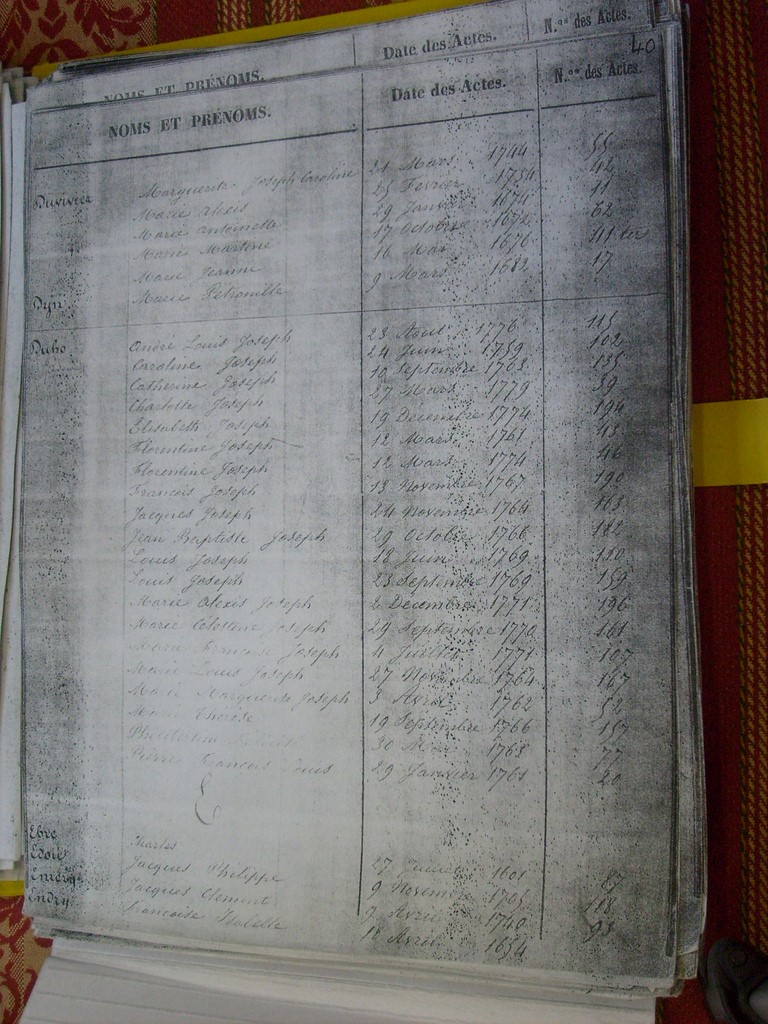 Date des Actes. N.os des Actes.
NOMS ET PRÉNOMS.
40
NOMS ET PRÉNOMS. Date des Actes. N.os des Actes.
Duvivier Marguerite Joseph Caroline 21 Mars 1744 55
Marie Alexis 25 Fevrier 1754 42
Marie Antoinette 29 1674 11
Marie Martine 17 Octobre 1672 62
Marie Jeanne 16 1676 41 ter
Dyn Marie Petronille 9 Mars 1683 17
Duho André Louis Joseph 23 Aout 1776 115
Caroline Joseph 24 Juin 1759 102
Catherine Joseph 10 Septembre 1763 135
Charlotte Joseph 27 Mars 1779 39
Elisabeth Joseph 19 Decembre 1774 194
Florentine Joseph 12 Mars 1761 43
Florentine Joseph 12 Mars 1774 46
Francois Joseph 13 Novembre 1767 190
Jacques Joseph 24 Novembre 1764 163
Jean Baptiste Joseph 29 Octobre 1766 182
Louis Joseph 18 Juin 1769 120
Louis Joseph 23 Septembre 1769 159
Marie Alexis Joseph 2 Decembre 1771 196
Marie Celestine Joseph 29 Septembre 1770 161
Marie Francoise Joseph 4 Juillet 1771 107
Marie Louis Joseph 27 Novembre 1764 167
Marie Marguerite Joseph 3 Avril 1762 52
Marie Therèse 19 Septembre 1766 157
30 1768 77
Pierre Francois Louis 29 Janvier 1761 20
E
Ebre Charles 27 1601 87
Jacques Philippe 9 Novembre 1765 118
Jacques Clement 7 Avril 1740 93
Endry Francoise Isabelle 18 Avril 1654